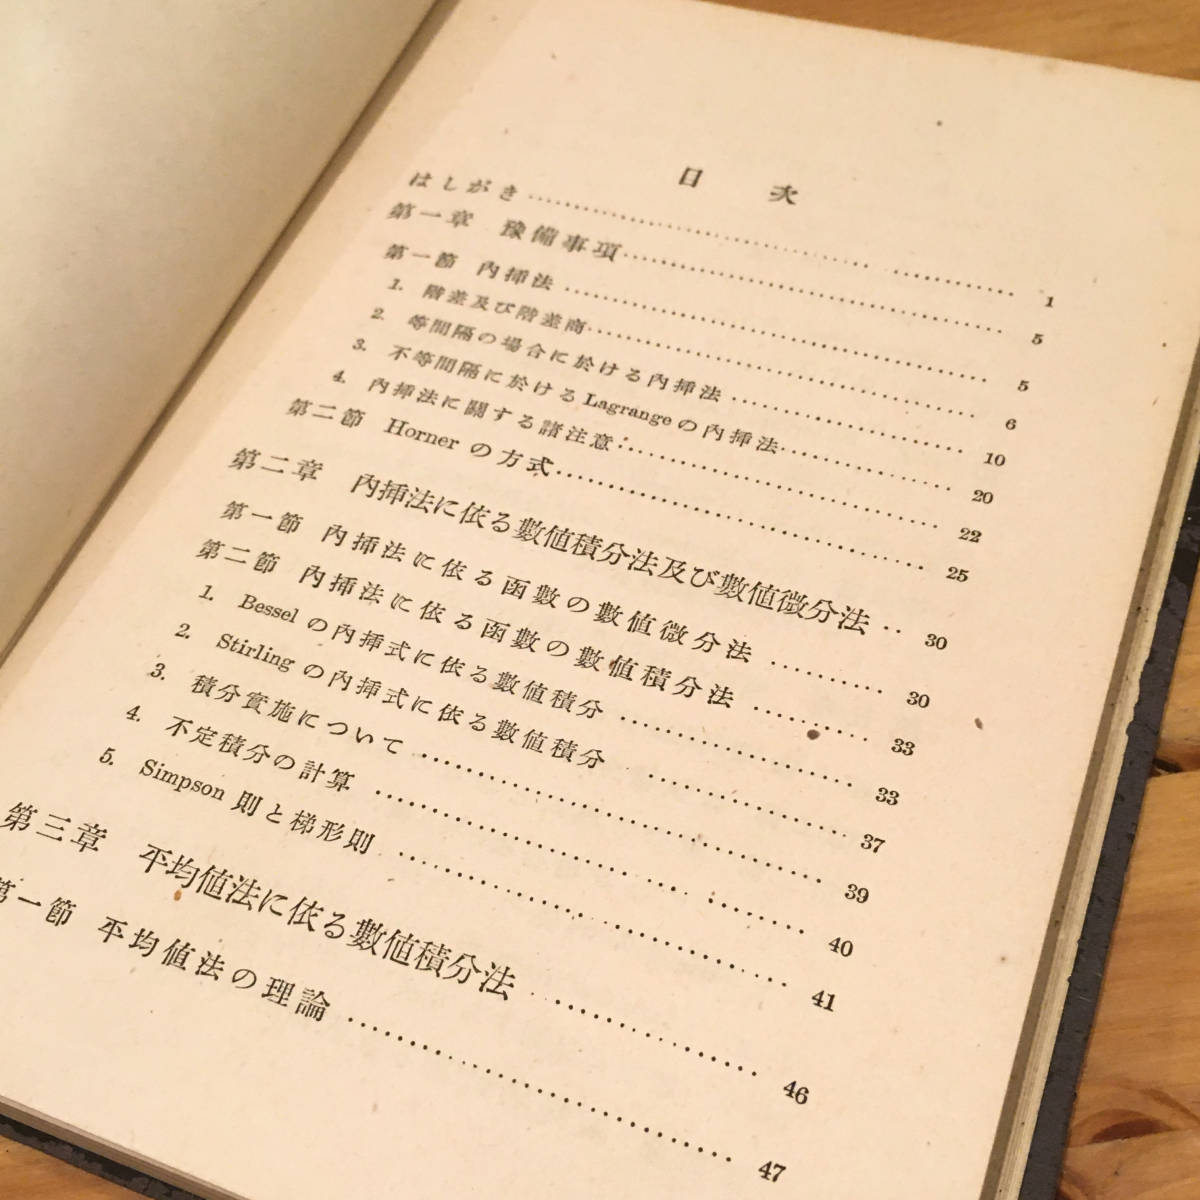 目次
はしがき 1
第一章 豫備事項 5
第一節 內揷法 5
1. 階差及び階差商 6
2. 等間隔の場合に於ける內揷法 10
3. 不等間隔に於ける Lagrange の內揷法 20
4. 內揷法に關する諸注意 22
第二節 Horner の方式 25
第二章 內揷法に依る數値積分法及び數値微分法 30
第一節 內揷法に依る函數の數値微分法 30
第二節 內揷法に依る函數の數値積分法 33
1. Bessel の內揷式に依る數値積分 33
2. Stirling の內揷式に依る數値積分 37
3. 積分實施について 39
4. 不定積分の計算 40
5. Simpson 則と梯形則 41
第三章 平均値法に依る數値積分法 46
第一節 平均値法の理論 47